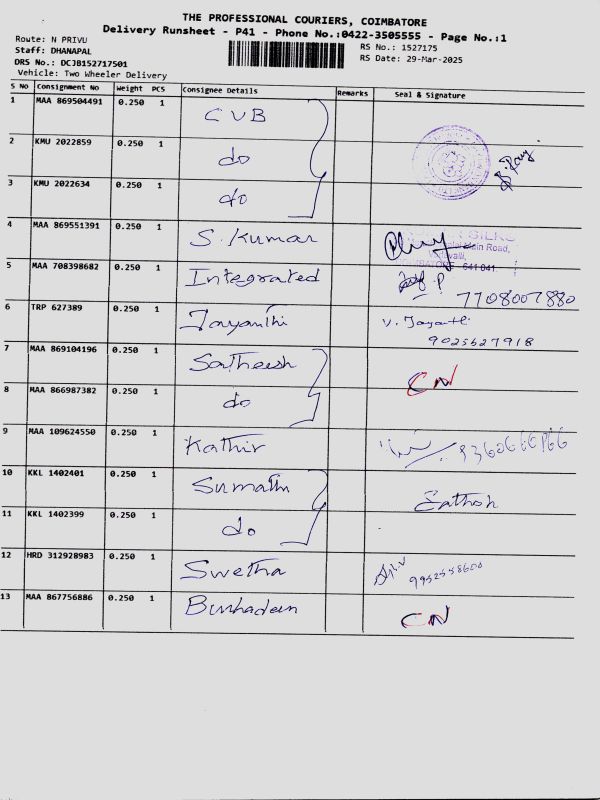 THE PROFESSIONAL COURIERS, COIMBATORE
Delivery Runsheet - P41 - Phone No.:0422-3505555 - Page No.:1
Route: N PRIVU
RS No.: 1527175
Staff: DHANAPAL
RS Date: 29-Mar-2025
DRS No.: DCJB152717501
Vehicle: Two Wheeler Delivery
S No Consignment No Weight PCS Consignee Details Remarks Seal & Signature
1 MAA 869504491 0.250 1 CUB
2 KMU 2022859 0.250 1 do
3 KMU 2022634 0.250 1 do
4 MAA 869551391 0.250 1 S. Kumar
SILKS
Main Road,
641 041
5 MAA 708398682 0.250 1 Integrated
7708007880
6 TRP 627389 0.250 1 Jayanthi
9025627918
7 MAA 869104196 0.250 1 Satheesh CN
8 MAA 866987382 0.250 1 do
9 MAA 109624550 0.250 1 Kathir
10 KKL 1402401 0.250 1 Sumathi
11 KKL 1402399 0.250 1 do
12 HRD 312928983 0.250 1 Swetha 9952558600
13 MAA 867756886 0.250 1 CN